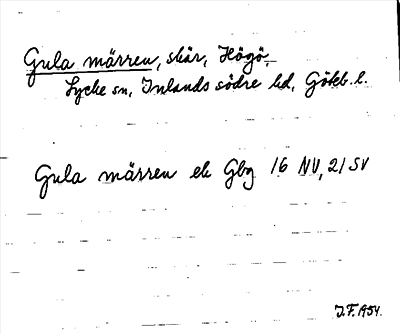 Gula märren, skär, Högö,
Lycke sn, Inlands södre hd, Göteb. l.
Gula märren ek Gbg 16 NV, 21 SV
J.F. 1954.